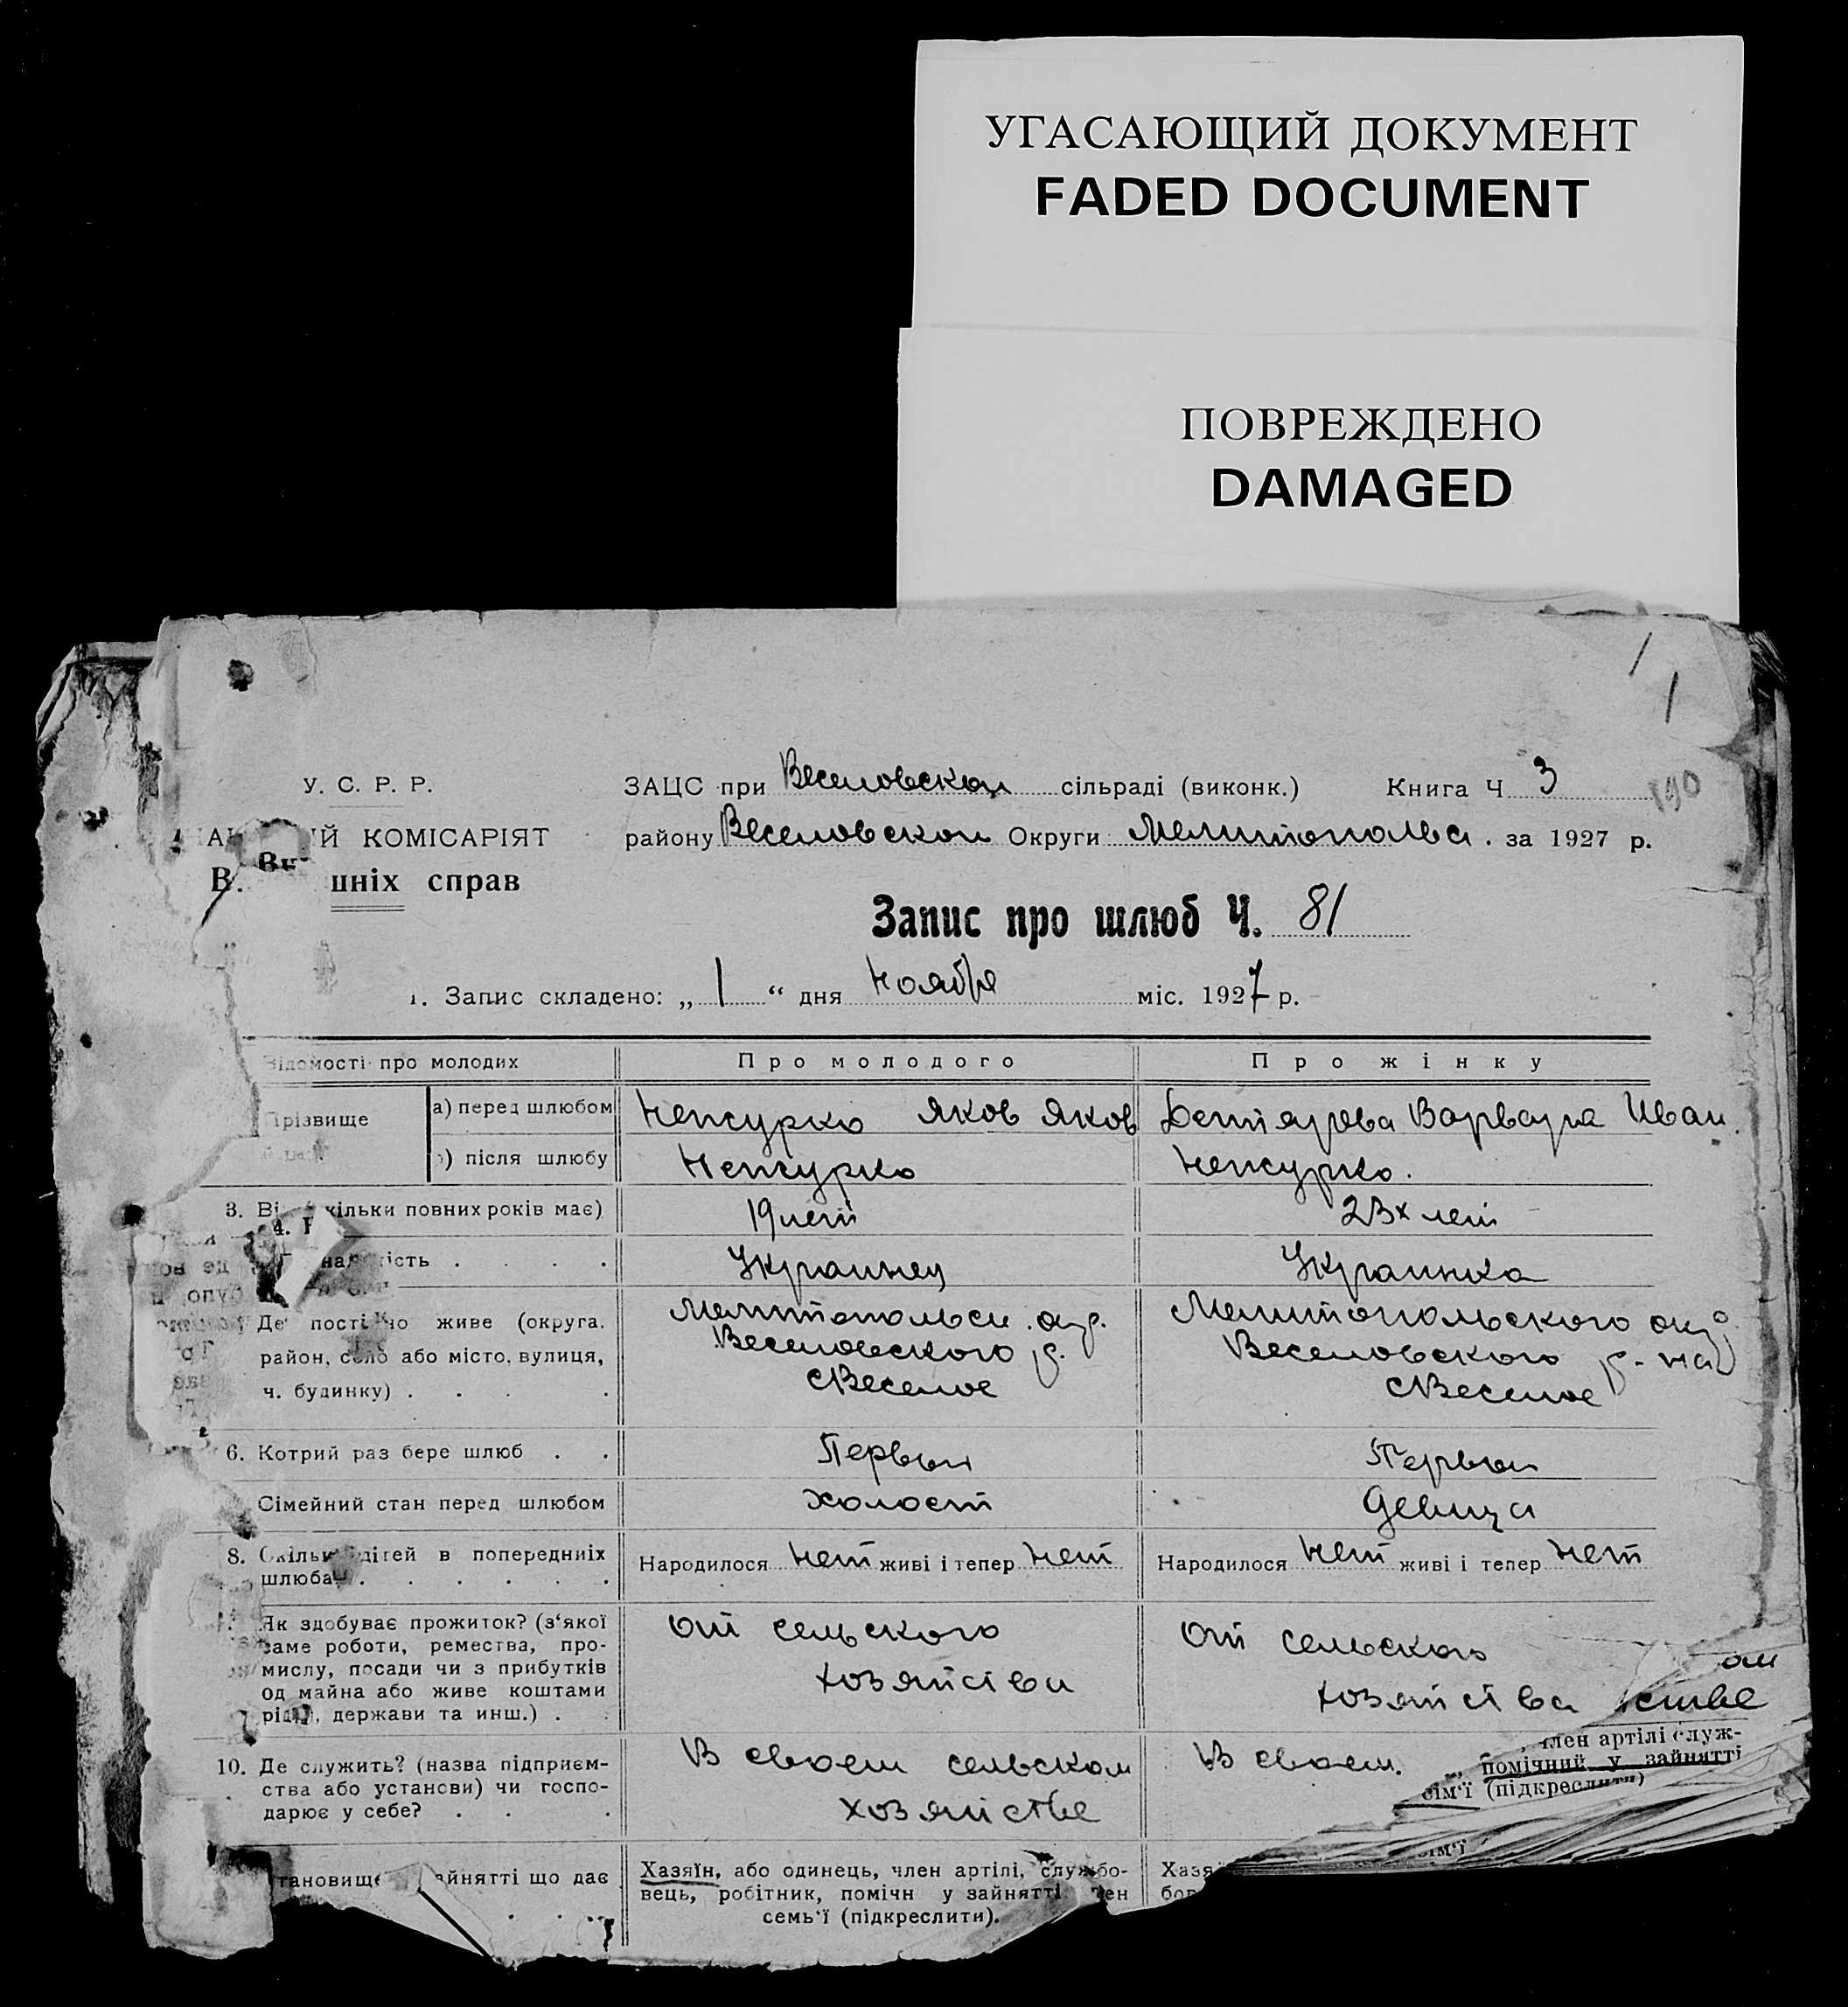 УГАСАЮЩИЙ ДОКУМЕНТ
FADED DOCUMENT
ПОВРЕЖДЕНО
DAMAGED
У. С. Р. Р.
ЗАЦС при Веселовской сільраді (виконк.) Книга Ч 3
190
Й КОМІСАРІЯТ
району Веселовском Округи Мелитопольс . за 1927 р.
шніх справ
Запис про шлюб Ч. 81
1. Запис складено: „ 1 “ дня Ноября міс. 1927 р.
Відомості про молодих Про молодого Про жінку
Прізвище а) перед шлюбом Яков Яков Варвара Иван.
після шлюбу
3. кільки повних років має) 19 лет 23х лет
ість . . . . Украинец Украинка
Де постійно живе (округа, Мелитопольск. окр. Мелитопольского окр
район, село або місто, вулиця, Веселовского р. Веселовского р-на
ч. будинку) . . . . с Веселое с Веселое
6. Котрий раз бере шлюб . . Первый Первый
Сімейний стан перед шлюбом холост девица
8. Скільки дітей в попередниіх Народилося нет живі і тепер нет Народилося нет живі і тепер нет
шлюбах . . . . . .
Як здобуває прожиток? (з‘якої От сельского От сельского
саме роботи, ремества, про-
мислу, посади чи з прибутків хозяйства хозяйства стве
од майна або живе коштами
рідні, держави та инш.) . .
10. Де служить? (назва підприєм- В своем сельском В своем.
член артілі служ-
помічний у зайнятті
сім‘ї (підкреслити)
ства або установи) чи госпо- хозяйстве
дарює у себе? . . .
тановище айнятті що дає Хазяїн, або одинець, член артілі, службо- Хазя
вець, робітник, помічн у зайнятті член бов
семь‘ї (підкреслити).
сім‘ї